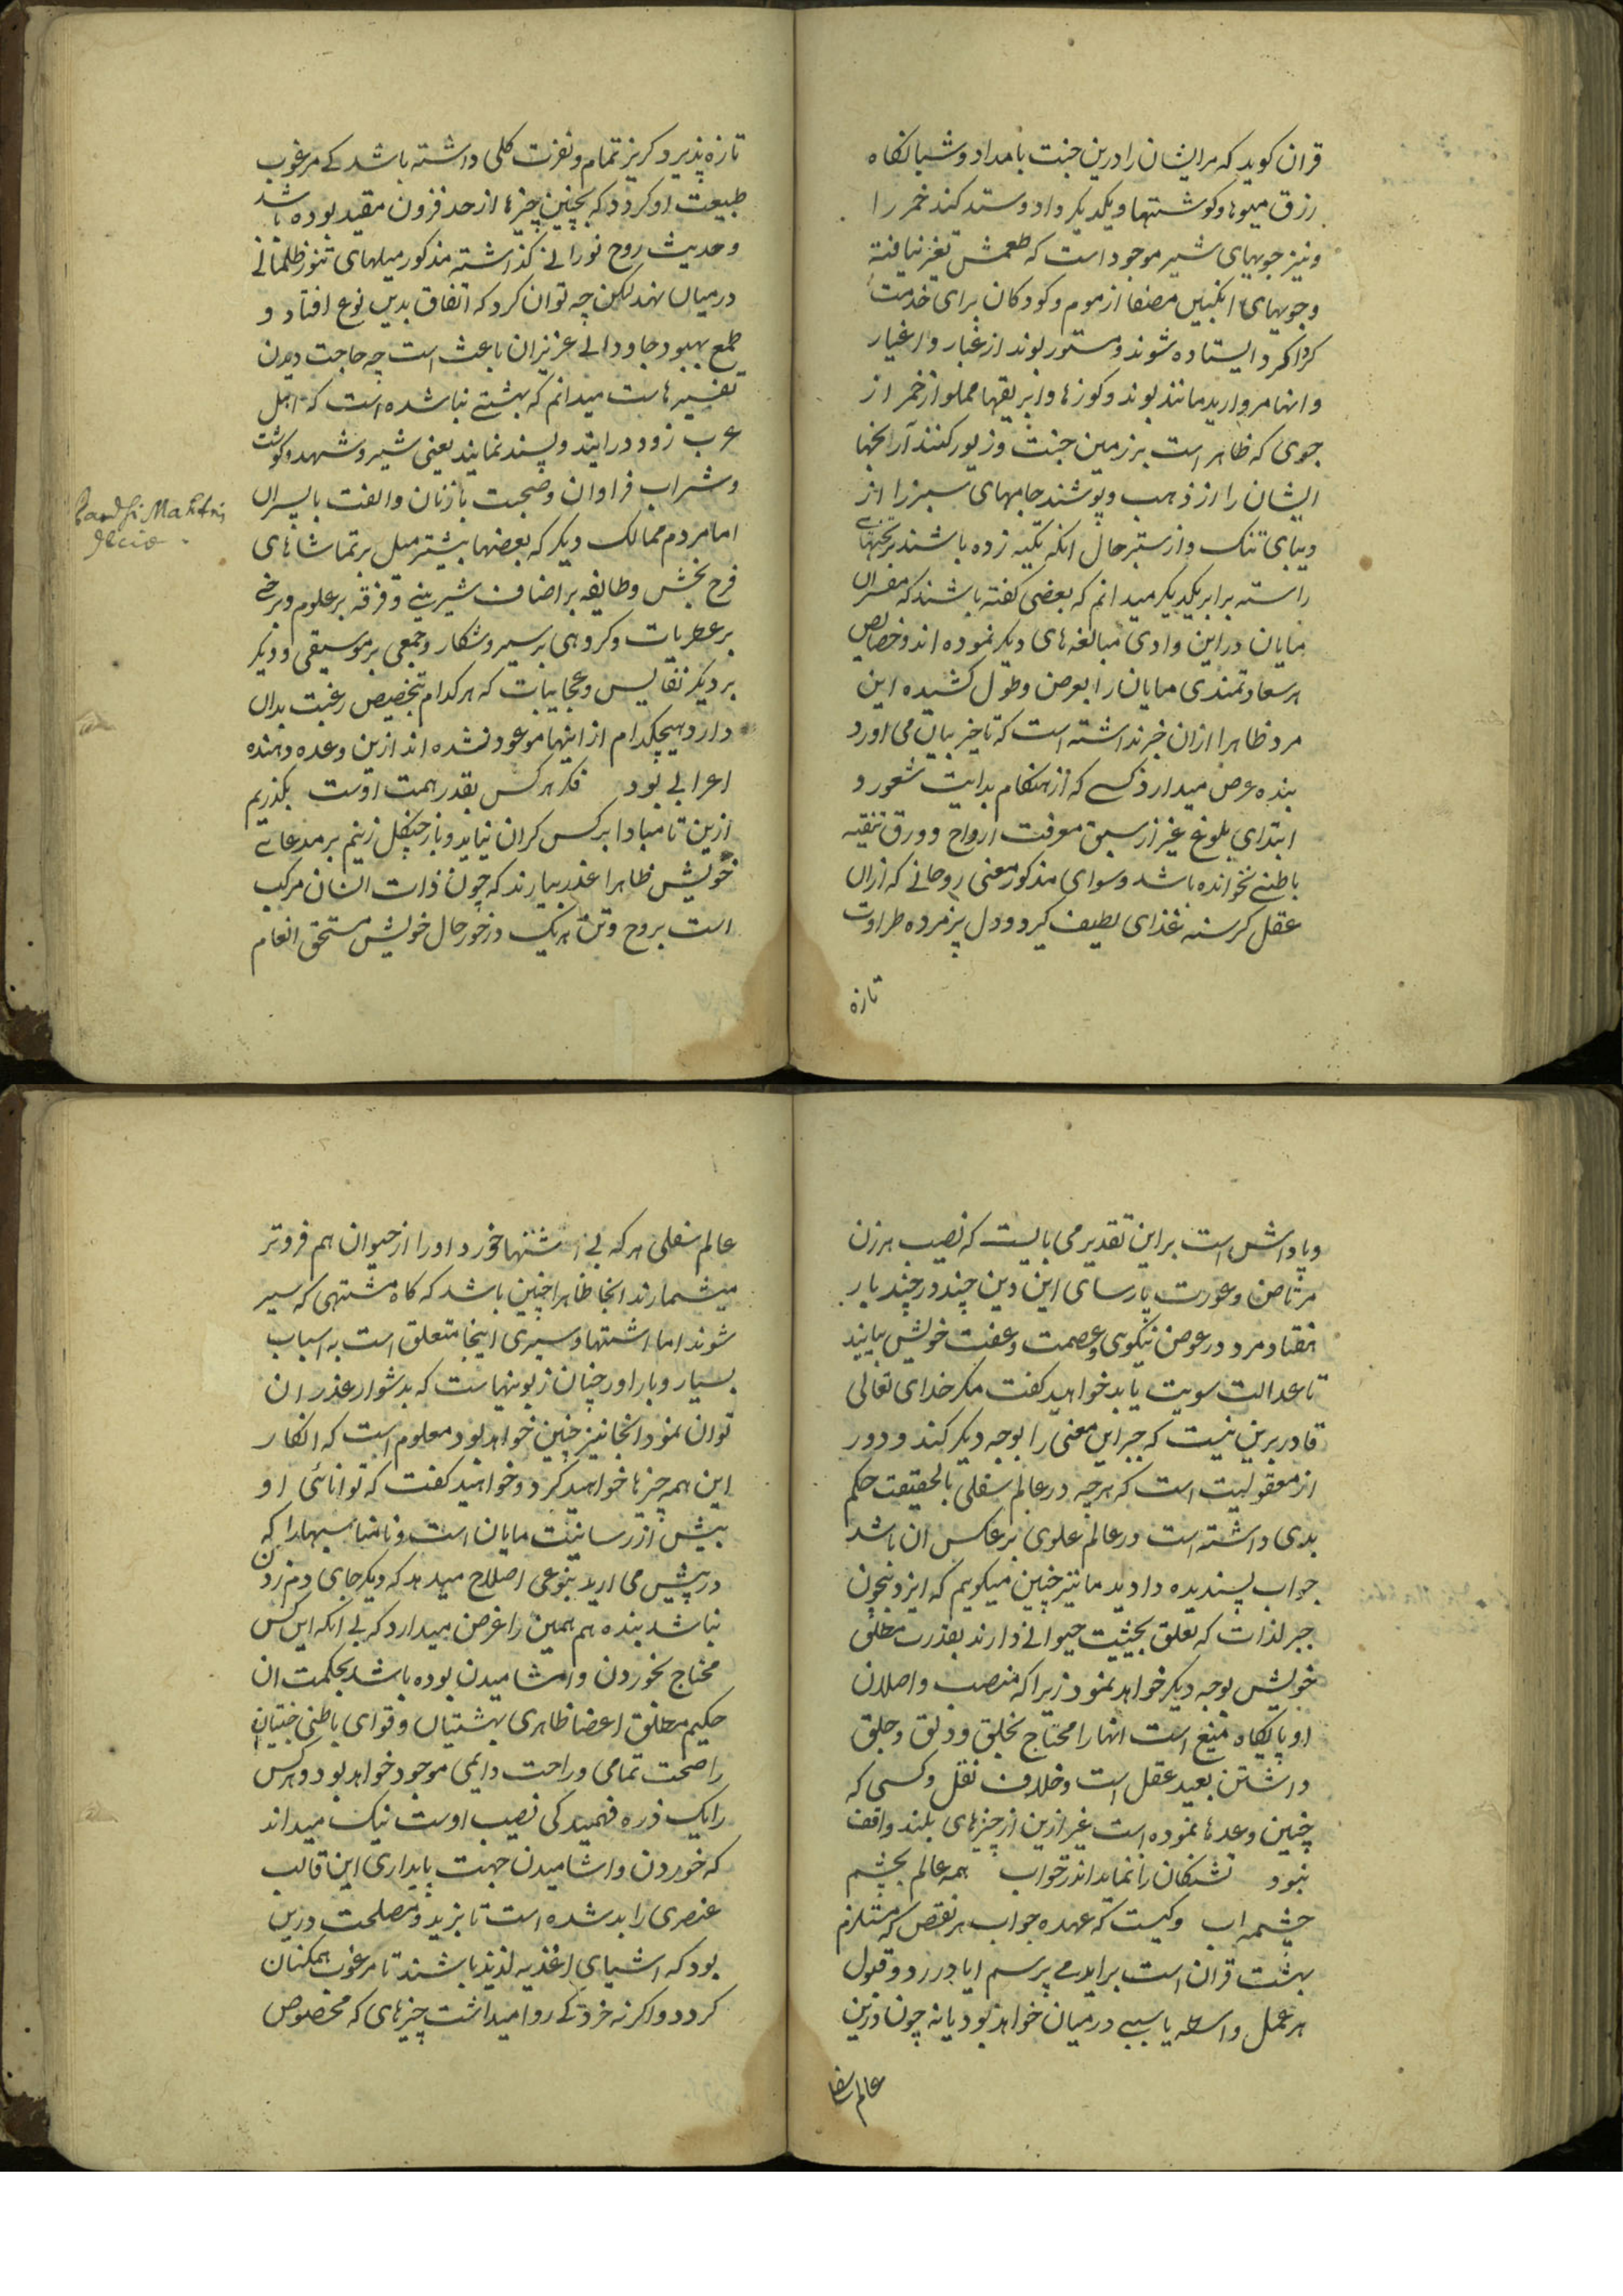 قران کوید که مرایشان را درین جنت بامداد و شبانکاه
رزق میوها و کوشتها و یکدیکر داد و ستد کنند خمر را
و نیز جویهای شیر موجود است که طعمش تغیر نیافته
و جویهای انکبین مصفا از موم و کودکان برای خدمت
کرداکرد ایستاده شوند و مستور بوند از غبار و اغیار
و انها مروارید مانند بوند و کوزها و ابریقها مملو از خمر از
جوی که ظاهر است بر زمین جنت و زیور کنند آرنجها
ایشان را از ذهب و پوشند جامهای سبز را از
دیبای تنک و از ستبر حال انکه تکیه زده باشند بر تختهای
راسته برابر یکدیکر میدانم که بعضی کفته باشند که مفسران
مایان در این وادی مبالغه های دیکر نموده اند و خصایص
هر سعادتمندی مایان را بعرض و طول کشیده این
مرد ظاهرا ازان خبر نداشته است که تاخیر بیان می اورد
بنده عرض میدارد کسے که از هنکام بدایت شعور و
ابتدای بلوغ غیر از سبق معرفت ارواح و ورق تنقیه
باطنے نخوانده باشد و سوای مذکور معنی روحانے که ازان
عقل کرسنه غذای لطیف کیرد و دل پژمرده طراوت
تازه
تازه پذیرد کریز تمام و نفرت کلی داشته باشد کے مرغوب
طبیعت او کردد که بچنین چیزها از حد فزون مقید بوده باشد
و حدیث روح نورانے کذاشته مذکور میلهای تنور ظلمانے
درمیان نهد لکن چه توان کرد که اتفاق بدین نوع افتاد و
طمع بهبود جاودانے عزیزان باعث است چه حاجت دیدن
تفسیرهاست میدانم که بهشتے نباشده است که اهل
عرب زود درایند و پسند نمایند یعنی شیر و شهد و کوشت
و شراب فراوان و صحبت با زنان و الفت با پسران
اما مردم ممالک دیکر که بعضها بیشتر میل بر تماشاهای
فرح بخش و طایفه بر اضاف شیرینے و فرقه بر علوم و برخے
بر عطریات و کروهی بر سیر و شکار و جمعی بر موسیقی و دیکر
بر دیکر نفایس و عجایبات که هر کدام بتخصیص رغبت بدان
دارد و هیچکدام از اینها موعود نشده اند ازین وعده دهنده
اعرابے بود فکر هر کس بقدر همت اوست بکذریم
ازین تا مبادا بر کس کران نیاید و باز چنکل زنیم بر مدعاے
خویش ظاهرا عذر بیارند که چون ذات انسان مرکب
است بروح و تن هر یک در خور حال خویش مستحق انعام
و پاداش است بر این تقدیر می بایست که نصیب هر زن
مرتاض و عورت پارسای این دین چند در چند بار
هفتاد مرد در عوض نیکوی و عصمت و عفت خویش بیابند
تا عدالت سویت یابد خواهید کفت مکر خدای تعالی
قادر برین نیست که جبر این معنی را بوجه دیکر کند و دور
از معقولیت است که هرچه در عالم سفلی بالحقیقت حکم
بدی داشته است در عالم علوی بر عکس ان باشد
جواب پسندیده دادید ما نیز چنین میکویم که ایزد بیچون
جبر لذات که تعلق بحیثیت حیوانے دارند بقدرت مطلق
خویش بوجه دیکر خواهد نمود زیرا که منصب واصلان
او پایکاه منیع است انها را محتاج بخلق و دلق و جلق
داشتن بعید عقل است و خلاف نقل و کسی که
چنین وعدها نموده است غیر ازین از چیزهای بلند واقف
نبود تشنکان را نماید اندر خواب همه عالم بچشم
چشمه اب و کیست که عهده جواب هر نقص که مستلزم
بهشت قران است براید مے پرسم ایا در رد و قبول
هر عمل واسطه یا سببے درمیان خواهد بود یا نه چون درین
عالم سفلی
عالم سفلی هر که بے اشتها خورد او را از حیوان هم فروتر
میشمارند انجا ظاهرا چنین باشد که کاه مشتهی که سیر
شوند اما اشتها و سیری اینجا متعلق است به اسباب
بسیار و بار اور چنان زبونیهاست که بدشوار عذر ان
توان نمود انجا نیز چنین خواهد بود معلوم است که انکار
این همه چیزها خواهید کرد و خواهید کفت که توانائی او
بیش از رسانیت مایان است و نامناسبیها را که
در پیش می ارید بنوعی اصلاح میدهد که دیکر جای دم زدن
نباشد بنده هم همین را غرض میدارد که بے انکه این کس
محتاج بخوردن و اشامیدن بوده باشد بحکمت ان
حکیم مطلق اعضا ظاهری بهشتیان و قوای باطنی جنتیان
را صحت تمامی و راحت دایمی موجود خواهد بود و هر کس
را یک ذره فهمیدکی نصیب اوست نیک میداند
که خوردن و اشامیدن جهت پایداری این قالب
عنصری را بد شده است تا بزید و مصلحت درین
بود که اشیای اغذیه لذیذ باشند تا مرغوب همکنان
کردد و اکرنه خرد کے روا میداشت چیزهای که مخصوص